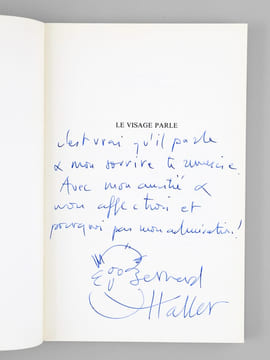 LE VISAGE PARLE
c'est vrai qu'il parle
& mon sourire te remercie.
Avec mon amitié &
mon affection et
pourquoi pas mon admiration!
Bernard
Haller